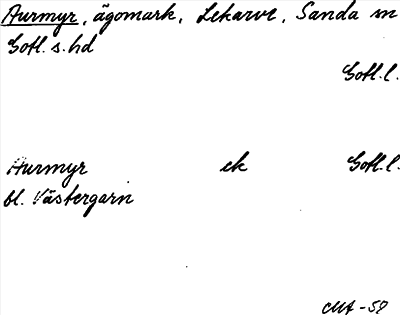 Aurmyr, ägomark, Lekarve, Sanda sn
Gotl. s. hd
Gotl. l.
Aurmyr ek Gotl. l.
bl. Västergarn
CMA-58